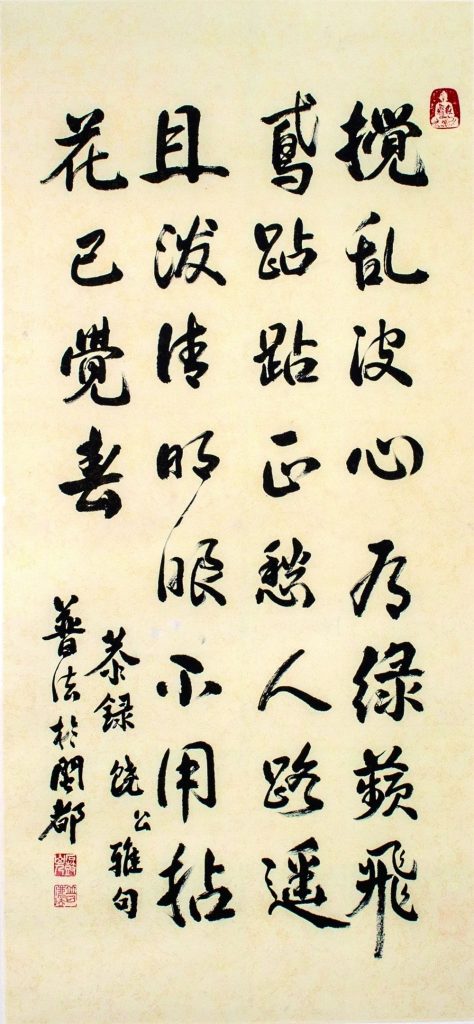 搅乱波心为绿蘋飛
鳶跕跕正愁人路遥
且泼清明眼不用拈
花已覺春
恭録饶公雅句
普法於閩都